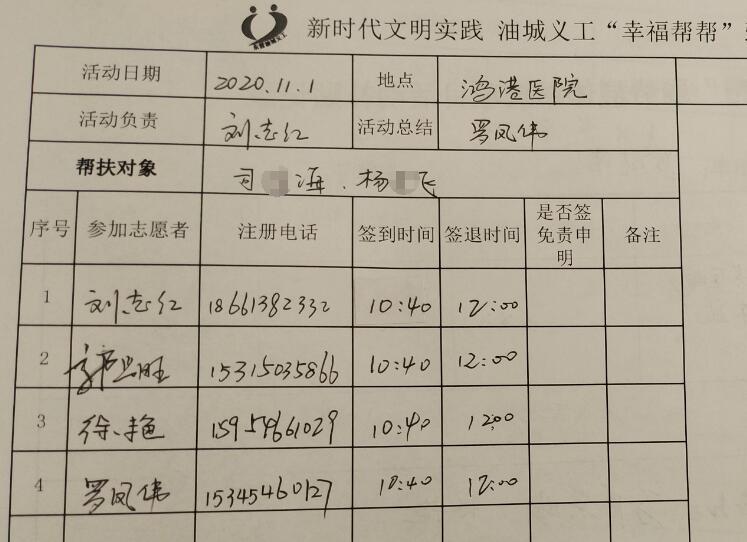 新时代文明实践 油城义工“幸福帮帮”
活动日期 2020.11.1 地点 鸿港医院
活动负责 刘志红 活动总结 罗凤伟
帮扶对象 司 海.杨 飞
序号 参加志愿者 注册电话 签到时间 签退时间 是否签免责申明 备注
1 刘志红 18661382332 10:40 12:00
2 15315035866 10:40 12:00
3 徐艳 15954661029 10:40 12:00
4 罗凤伟 15345460127 10:40 12:00